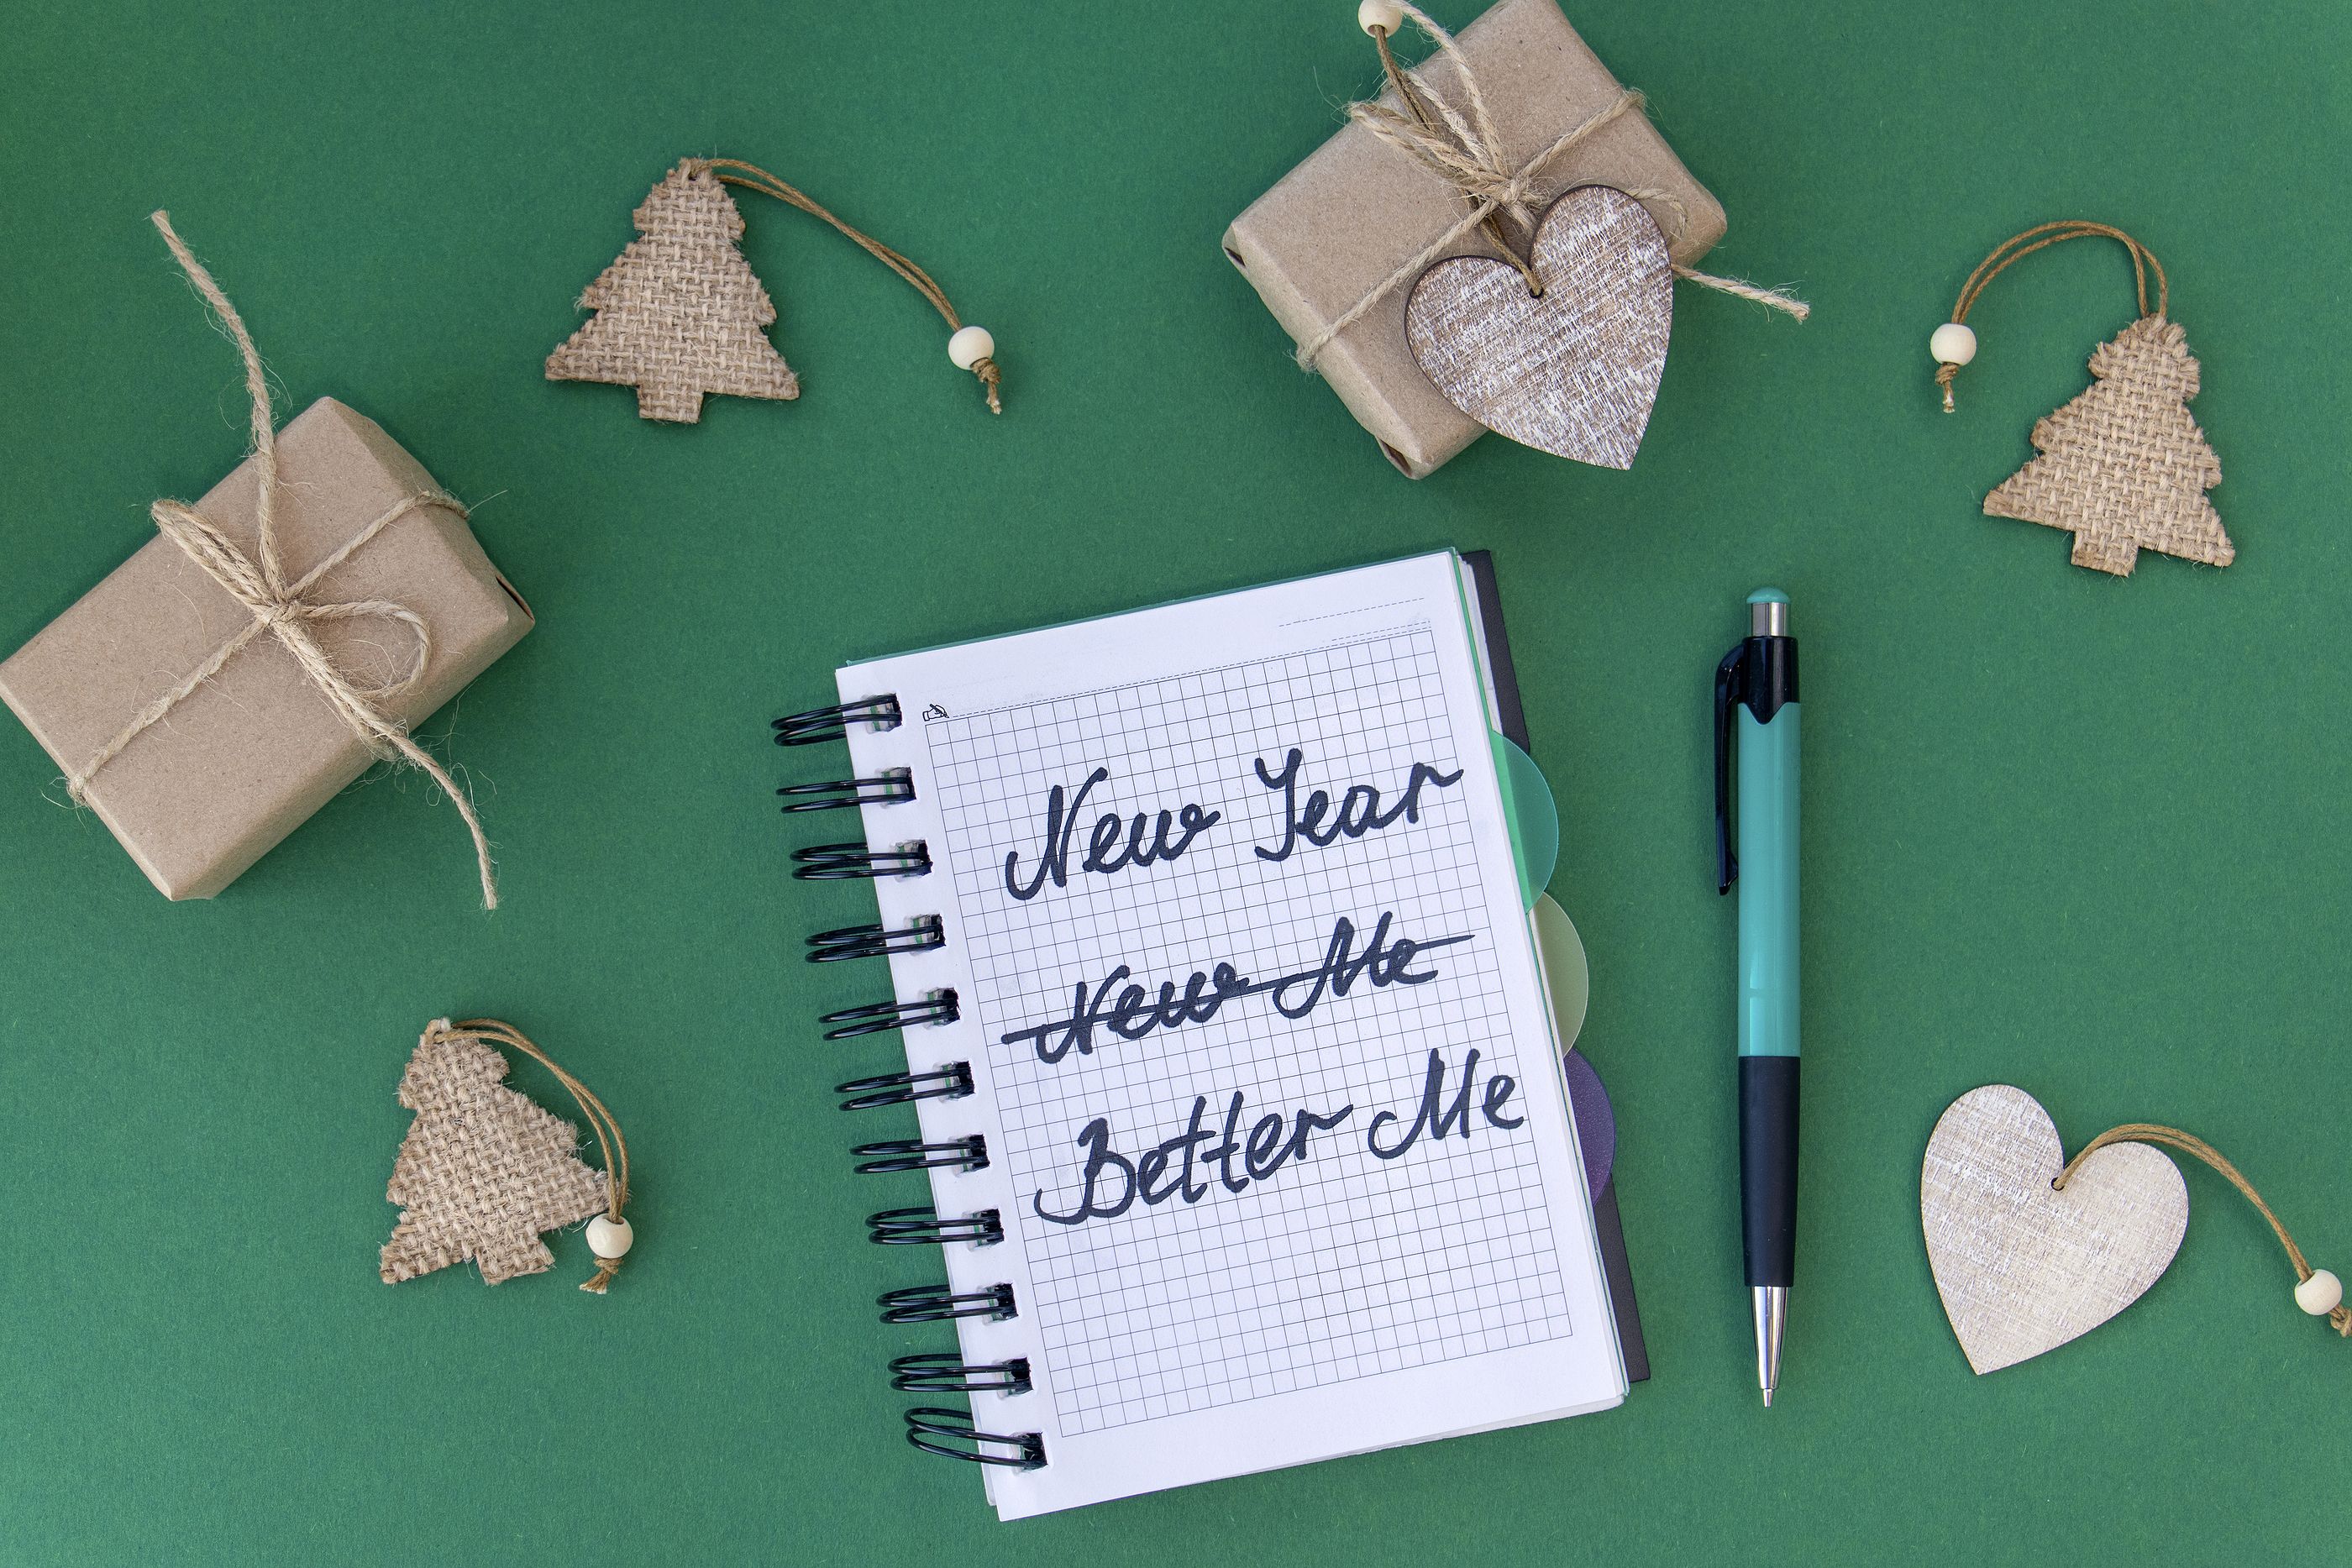 New Year
New Me
Better Me